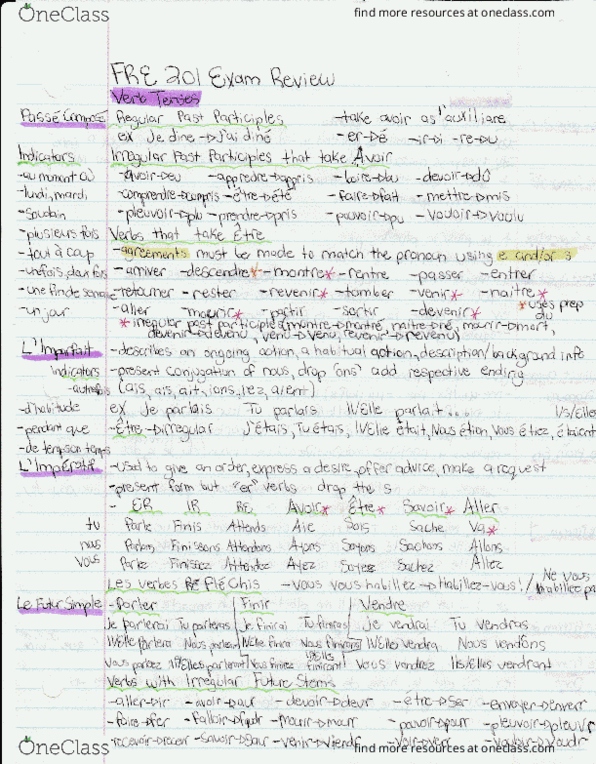 OneClass
find more resources at oneclass.com
FRE 201 Exam Review
Verb Tenses
Passé Composé Regular Past Participles -take avoir as l'auxiliare
ex Je dine → J'ai diné -er→é -ir→i -re→u
Indicators Irregular Past Participles that take Avoir
-au moment où -avoir→eu -apprendre→appris -boire→bu -devoir→dû
-lundi, mardi, -comprendre→compris -être→été -faire→fait -mettre→mis
-Soudain -pleuvoir→plu -prendre→pris -pouvoir→pu -vouloir→voulu
-plusieurs fois Verbs that take Être
-tout à coup -agreements must be made to match the pronoun using e and/or s
-une fois, deux fois -arriver -descendre* -montre* -rentre -passer -entrer
-une fin de semaine -retourner -rester -revenir* -tomber -venir* -naitre*
-un jour -aller -mourir* -partir -sortir -devenir* *uses prep du
* irregular past participle (montre→montré, naitre→né, mourir→mort,
devenir→devenu, venu→venu, revenir→revenu)
L'Imparfait -describes an ongoing action, a habitual action, description/background info
Indicators -present conjugation of nous, drop "ons" add respective ending
-autrefois (ais, ais, ait, ions, iez, aient)
-d'habitude ex Je parlais Tu parlais Il/Elle parlait... Ils/Elle
-pendant que -Être→irregular J'étais, Tu étais, Il/Elle était, Nous étion, Vous étiez, étaient
-de temps en temps
L'Impératif -used to give an order, express a desire, offer advice, make a request
-present form but "er" verbs drop the s
- ER IR RE Avoir* Être* Savoir* Aller
tu Parle Finis Attends Aie Sois Sache Va*
nous Parlons Finissons Attendons Ayons Soyons Sachons Allons
vous Parlez Finissez Attendez Ayez Soyez Sachez Allez
Les verbes Réfléchis -Vous vous habillez → Habillez-vous! / Ne vous habillez pa
Le Futur Simple -Parler Finir Vendre
Je parlerai Tu parleras Je finirai Tu finiras Je vendrai Tu vendras
Il/Elle parlera Nous parlerons Il/Elle finira Nous finirons Il/Elle vendra Nous vendons
Vous parlez Ils/Elles parleront Vous finirez Ils/Elles finiront Vous vendrez Ils/elles vendront
Verbs with Irregular Future Stems
-aller→ir -avoir→aur -devoir→devr -être→ser -envoyer→enverr
-faire→fer -falloir→faudr -mourir→mourr -pouvoir→pourr -pleuvoir→pleuvr
-recevoir→recevr -savoir→saur -venir→viendr -voir→verr -vouloir→voudr
OneClass
find more resources at oneclass.com